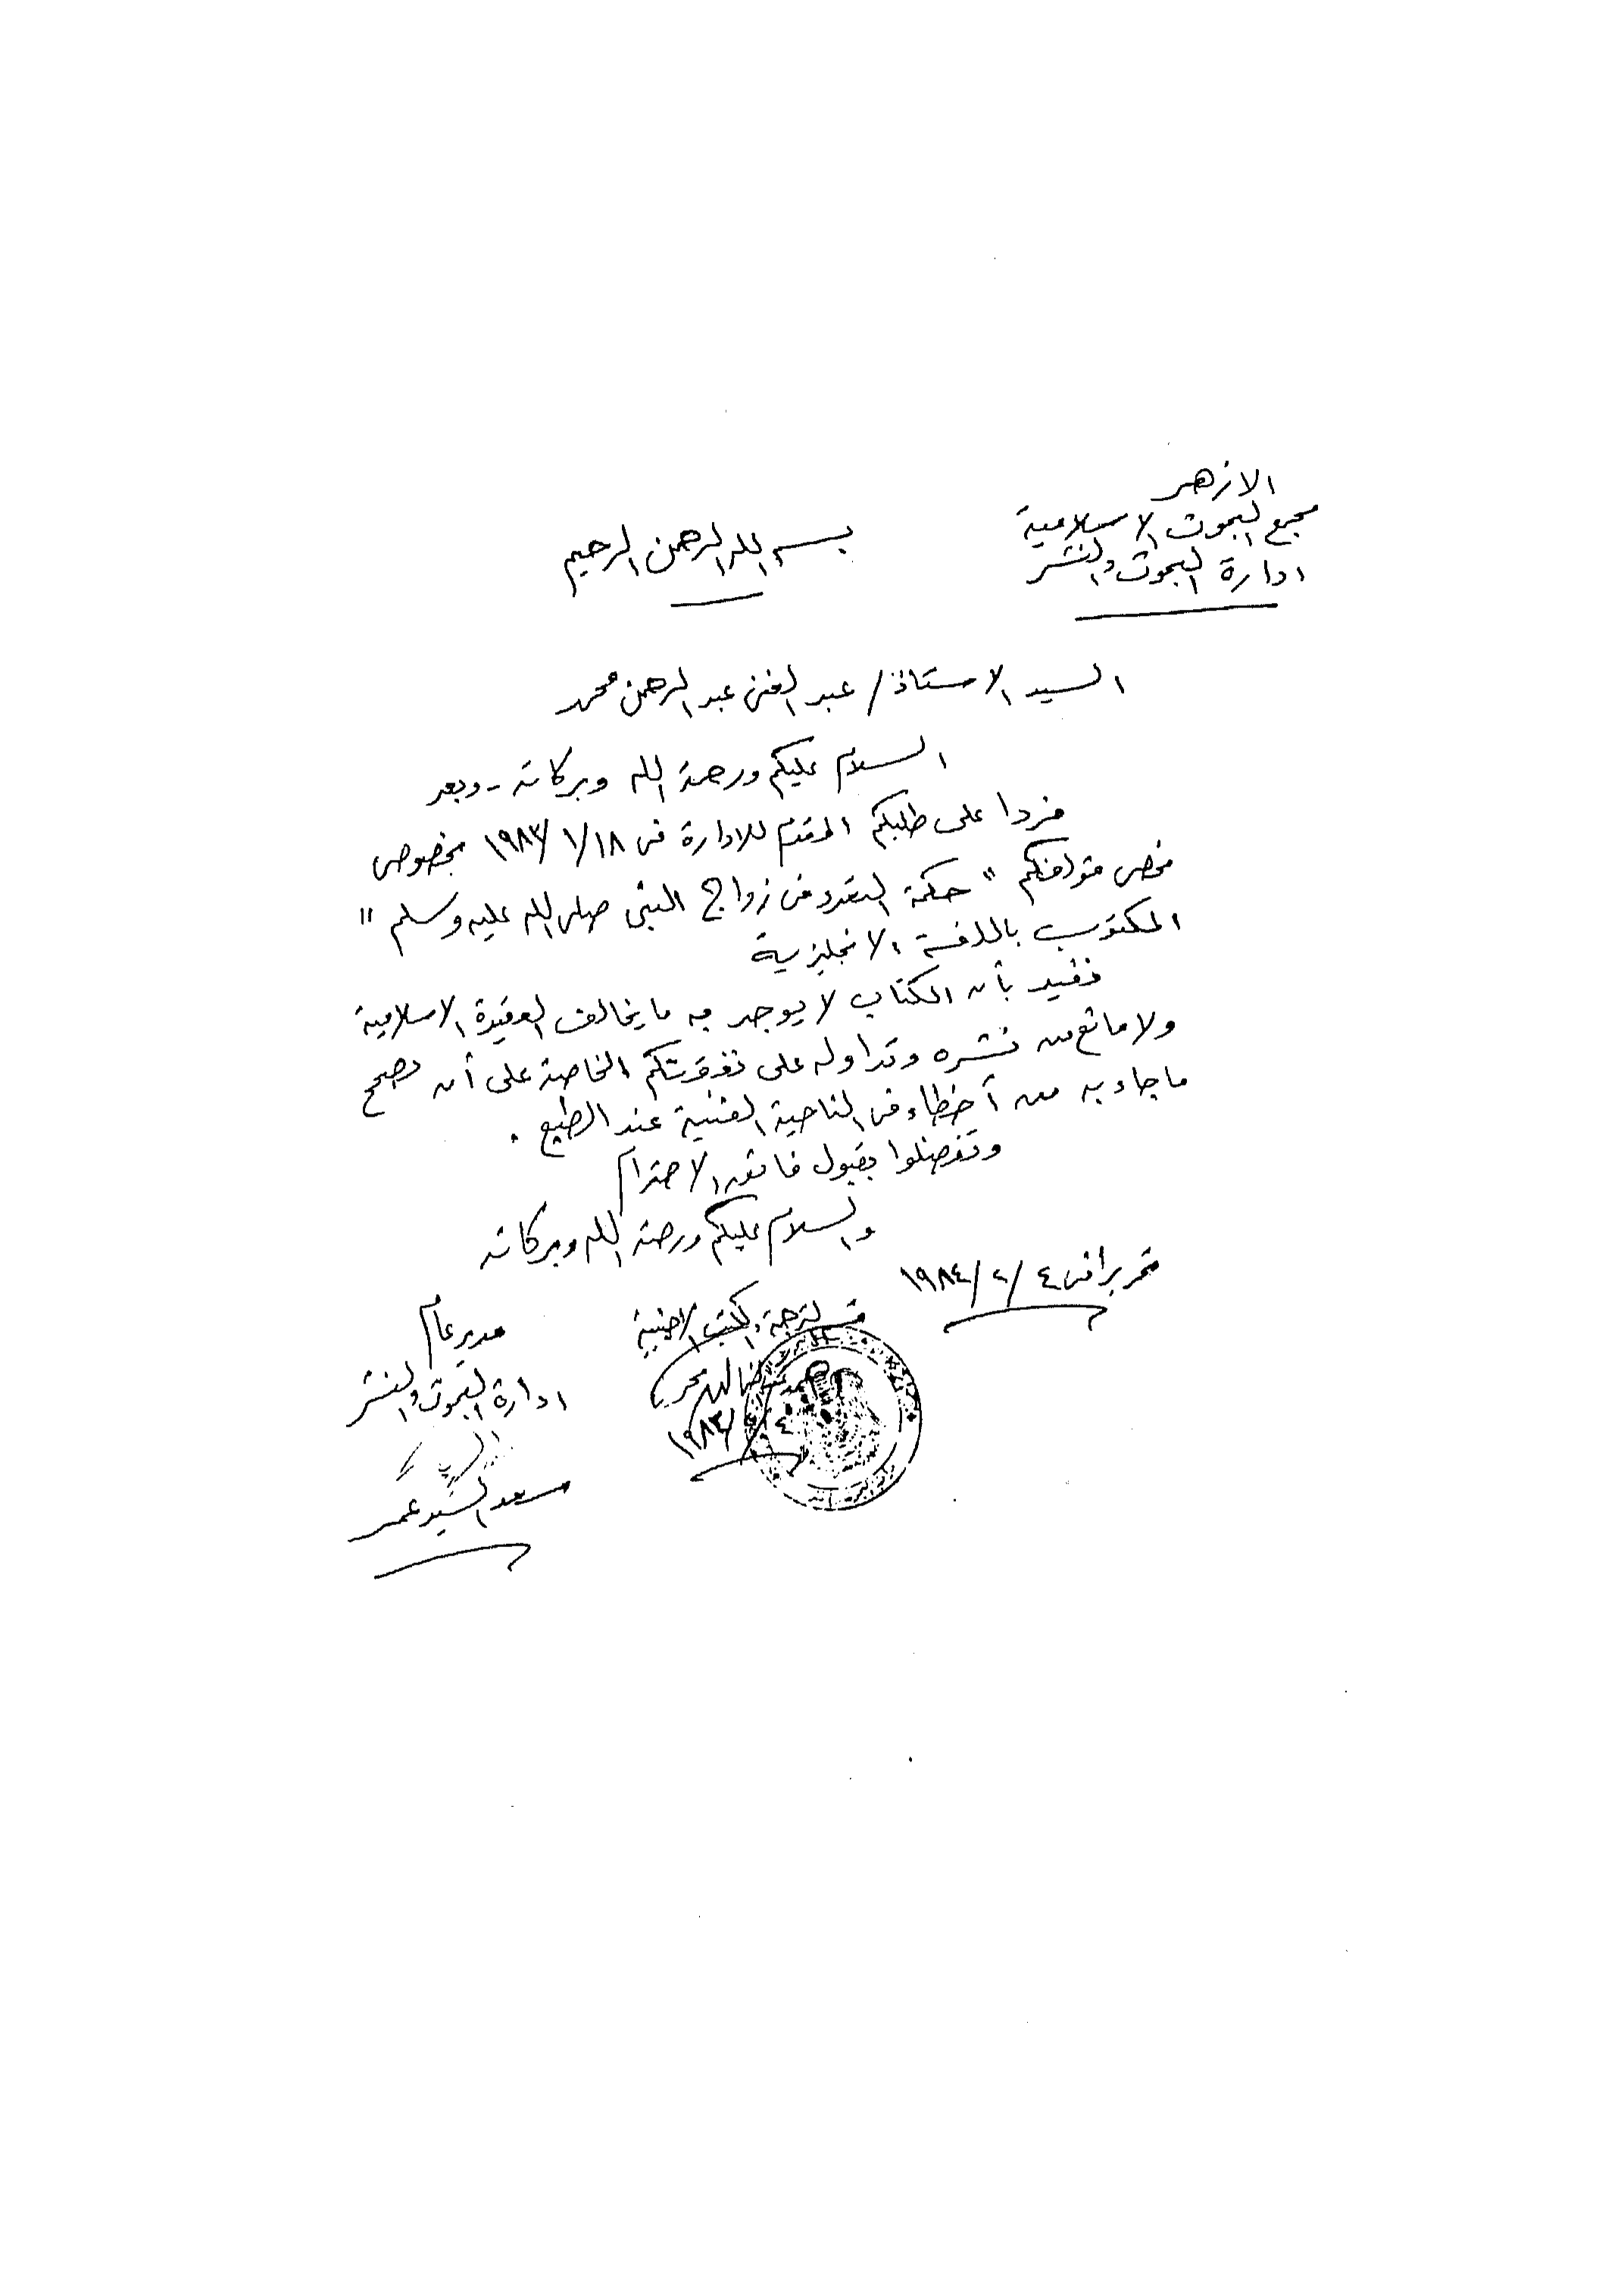 الازهر
مجمع البحوث الاسلامية
ادارة البحوث والنشر
بسم الله الرحمن الرحيم
السيد الاستاذ / عبد الغنى عبد الرحمن محمد
السلام عليكم ورحمة الله وبركاته - وبعد
فردا على طلبكم المقدم للادارة فى ١٨/ ١/ ١٩٨٣ بخصوص
فحص مؤلفكم " حكمة التعدد فى زواج النبى صلى الله عليه وسلم "
المكتوب باللغة الانجليزية
نفيد بأن الكتاب لا يوجد به ما يخالف العقيدة الاسلامية
ولا مانع من نشره وتداوله على نفقتكم الخاصة على أن تصحح
ما جاء به من أخطاء فى الناحية الفنية عند الطبع .
وتفضلوا بقبول فائق الاحترام
والسلام عليكم ورحمة الله وبركاته
تحريرا فى ٤/ ٢/ ١٩٨٤
قسم الترجمة والكتب الاجنبية
١٩٨٣/
مدير عام
ادارة البحوث والنشر
سعد السيد عمر